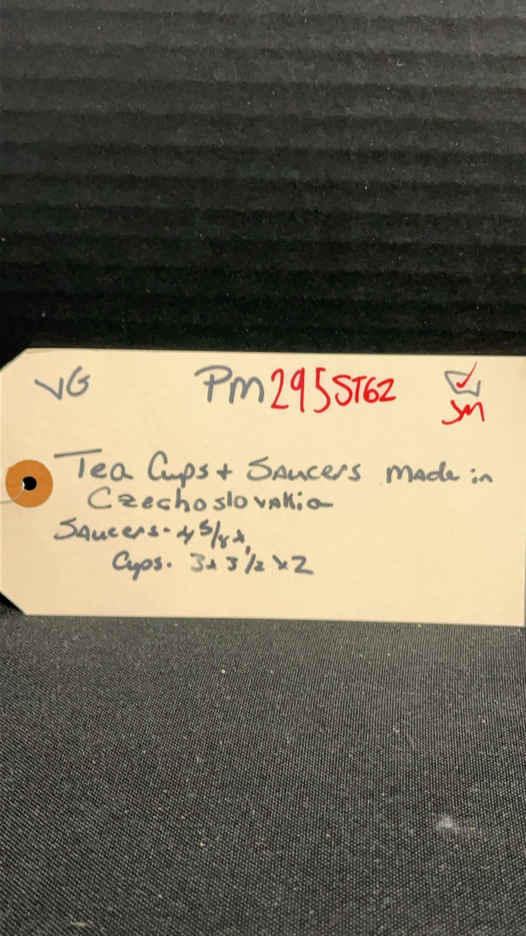 VG PM295ST62
SM
Tea Cups + Saucers made in
Czechoslovakia
Saucers - 4 5/8
Cups. 3 x 3 1/2 x 2